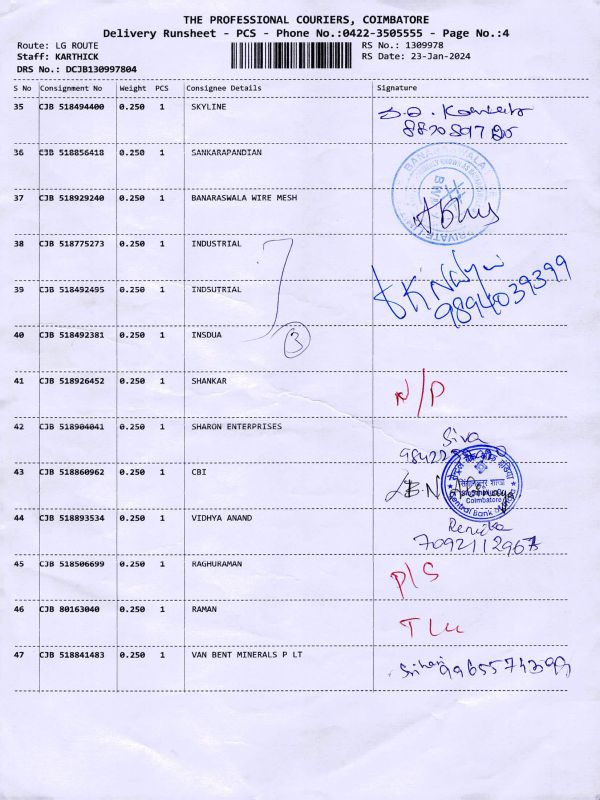 THE PROFESSIONAL COURIERS, COIMBATORE
Delivery Runsheet - PCS - Phone No.:0422-3505555 - Page No.:4
Route: LG ROUTE
RS No.: 1309978
Staff: KARTHICK
RS Date: 23-Jan-2024
DRS No.: DCJB130997804
S No Consignment No Weight PCS Consignee Details Signature
35 CJB 518494400 0.250 1 SKYLINE
36 CJB 518856418 0.250 1 SANKARAPANDIAN
37 CJB 518929240 0.250 1 BANARASWALA WIRE MESH
38 CJB 518775273 0.250 1 INDUSTRIAL
39 CJB 518492495 0.250 1 INDSUTRIAL
9894039399
40 CJB 518492381 0.250 1 INSDUA
3
41 CJB 518926452 0.250 1 SHANKAR N/P
42 CJB 518904041 0.250 1 SHARON ENTERPRISES Siva
43 CJB 518860962 0.250 1 CBI
Coimbatore
Central Bank of India
44 CJB 518893534 0.250 1 VIDHYA ANAND Renuka
45 CJB 518506699 0.250 1 RAGHURAMAN P/S
46 CJB 80163040 0.250 1 RAMAN
47 CJB 518841483 0.250 1 VAN BENT MINERALS P LT